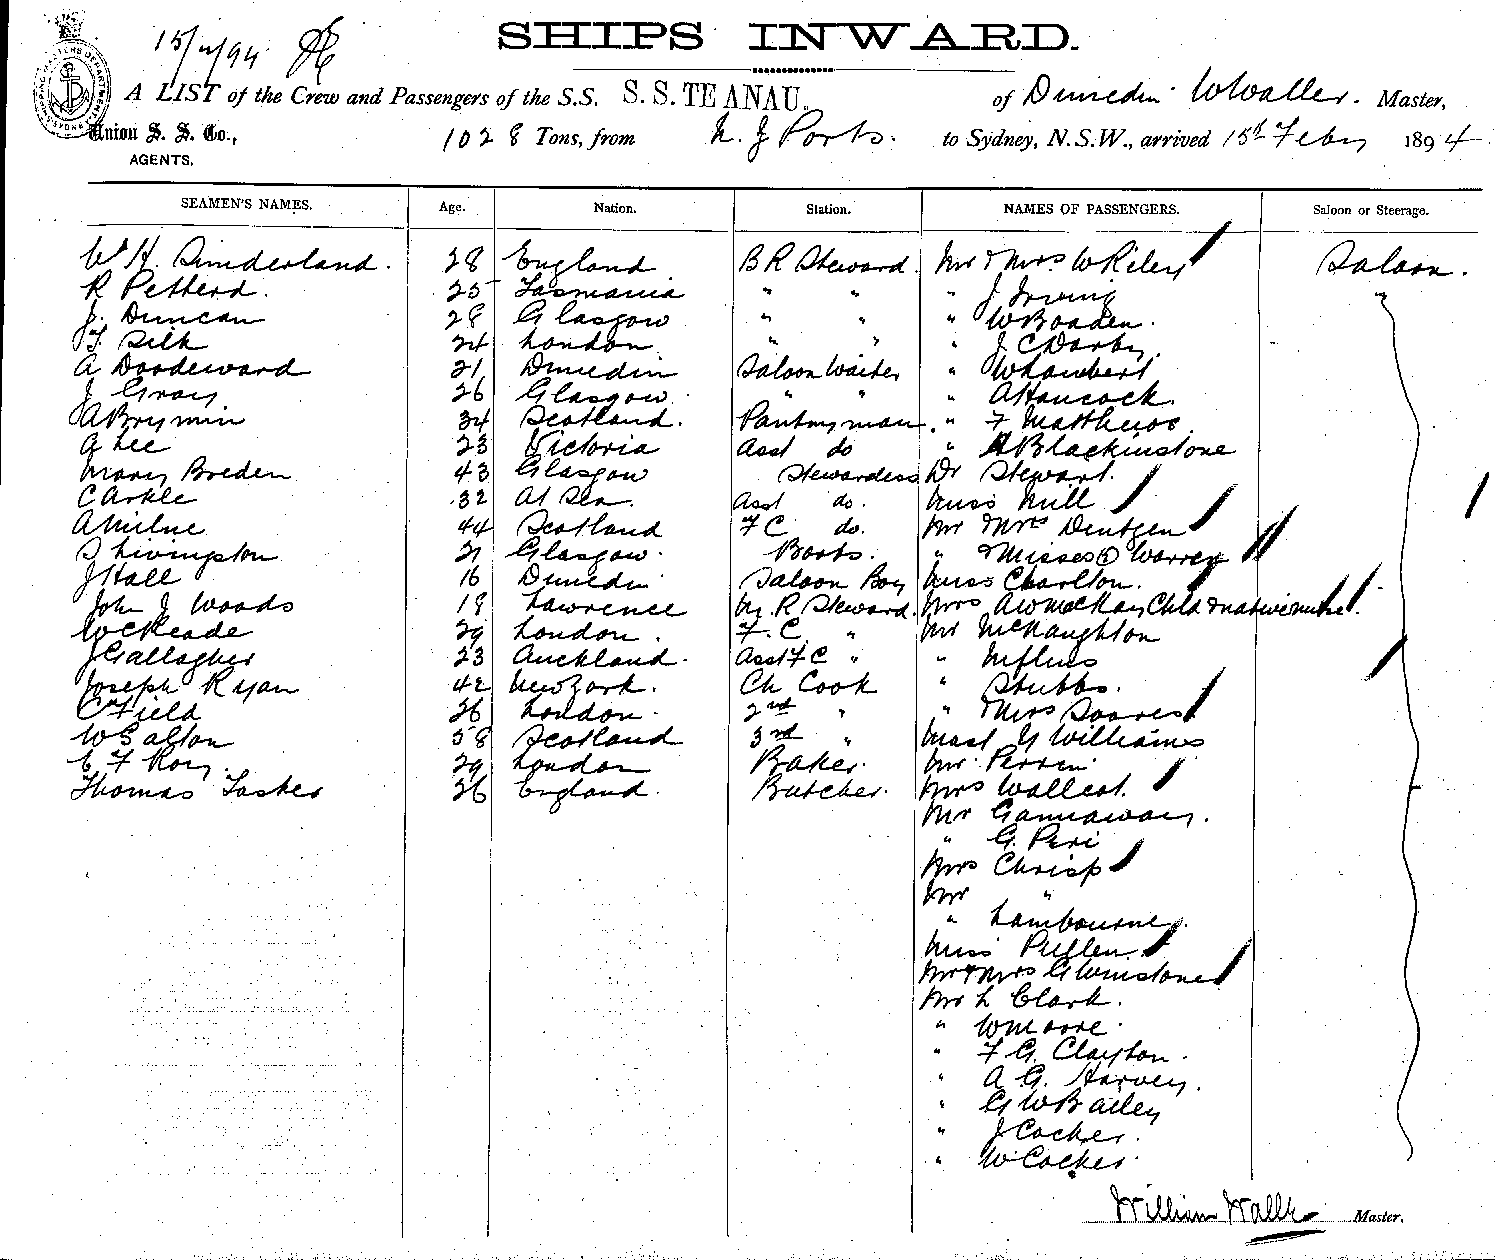 15/2/94
SHIPS INWARD.
A LIST of the Crew and Passengers of the S.S. S.S. TE ANAU. of Dunedin W Waller. Master,
Union S. S. Co., 1028 Tons, from N. Z Ports. to Sydney, N.S.W., arrived 15th Feby 1894
AGENTS.
SEAMEN'S NAMES. Age. Nation. Station. NAMES OF PASSENGERS. Saloon or Steerage.
Wm H. Sunderland. 28 England B R Steward. Mr & Mrs W Riley Saloon.
R Petterd. 25 Tasmania " " " J Irving "
J. Duncan 28 Glasgow " " " W Boaden.
T. Silk 24 London " " " J C Darby.
A Doodeward 21 Dunedin Saloon Waiter " W Lambert
J Gray 26 Glasgow. " " " A Hancock.
A Brymin 34 Scotland. Pantryman. " F Matthews.
G Lee 23 Victoria Asst do " A Blackinstone
Mary Breden 43 Glasgow Stewardess Dr Stewart.
C Arkle 32 At Sea. Asst do. Miss Mill
A Milne 44 Scotland F C do. Mr Mrs Dentgen
S Livingston 21 Glasgow. Boots. " & Misses Warren
J Hall 16 Dunedin Saloon Boy Miss Charlton.
John J Woods 18 Lawrence M. R Steward. Mrs A W McKay Child & native nurse.
W C Reade 29 London. F. C. " Mr McNaughton
J Gallagher 23 Auckland. Asst F C " "
Joseph Ryan 42 New York. Ch Cook " Stubbs.
C Field 26 London. 2nd " " & Mrs Soares
W Galton 58 Scotland 3rd " Mast G Williams
E F Roy. 29 London Baker. Mr. Perrin
Thomas Tasker 26 England. Butcher. Mrs Wallcot.
Mr Gannaway.
" G. Peri
Mrs Chrisp
Mr "
" Lambourne.
Miss Pullen.
Mr & Mrs G Winstone
Mr L Clark.
" W Moore.
" F G. Clayton.
" A G. Harvey.
" G W Bailey
" J Cocker.
" W Cocker.
William Waller Master.